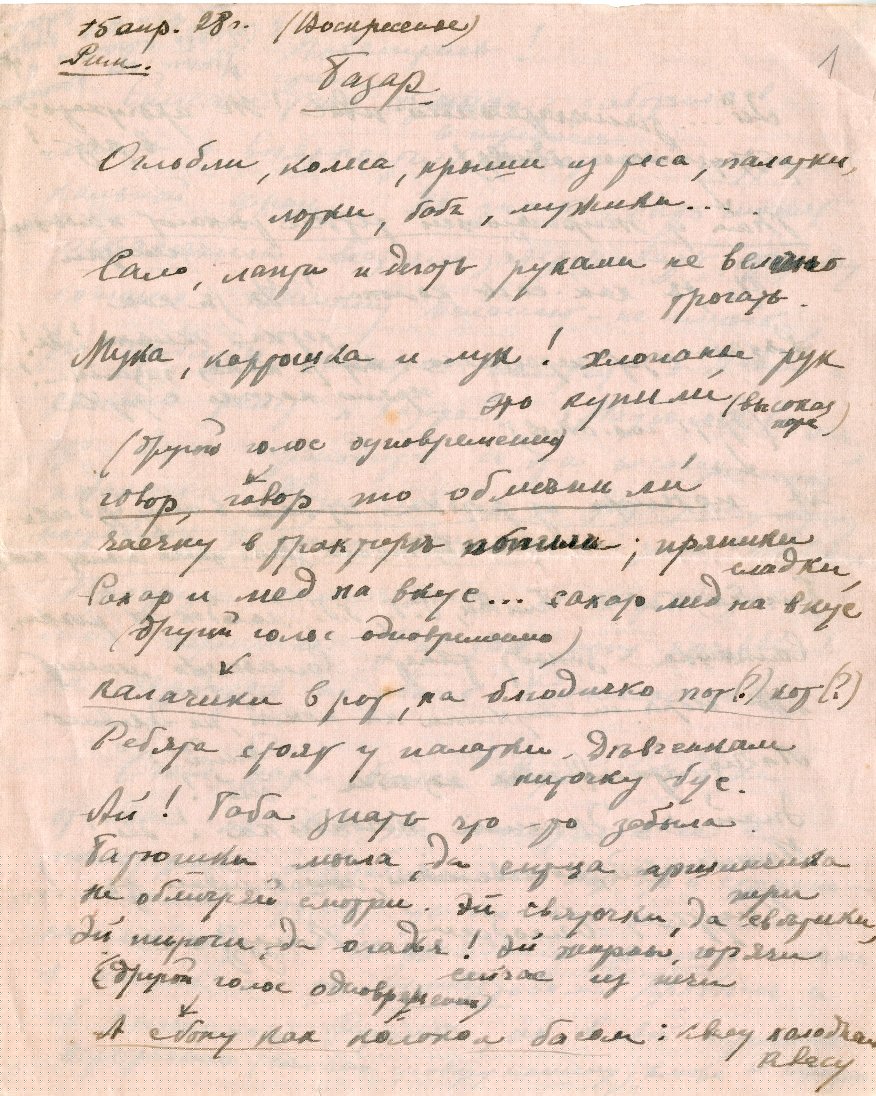 15 апр. 28 г. (Воскресенье)
1
Рим.
Базар
Оглобли, колеса, крыши из теса, палатки,
лотки, бабы, мужики....
Сало, лапти и дёготь руками не велено
трогать.
Мука, картошка и лук! хлопанье рук
это купили (высокая
нота)
(Другой голос одновременно)
говор, говор то обмѣнили
чаечку в трактирѣ попили; пряники
сладки,
Сахар и мед на вкус... сахар мед на вкус
(Другой голос одновременно)
калачики в рот, на блюдичко пот(?) кот(?)
Ребята стоят у палатки. Дѣвченкам
ниточку бус.
Ай! Баба знать что-то забыла.
Батюшки мыла, да ситца аршинчика
три
не обмѣряй смотри. Эй святочки, да святики,
Эй пироги, да оладьи! Эй жирны, горячи
сейчас из печи
(Другой голос одновременно)
А сбоку как колокол басом: квасу холодном
квасу